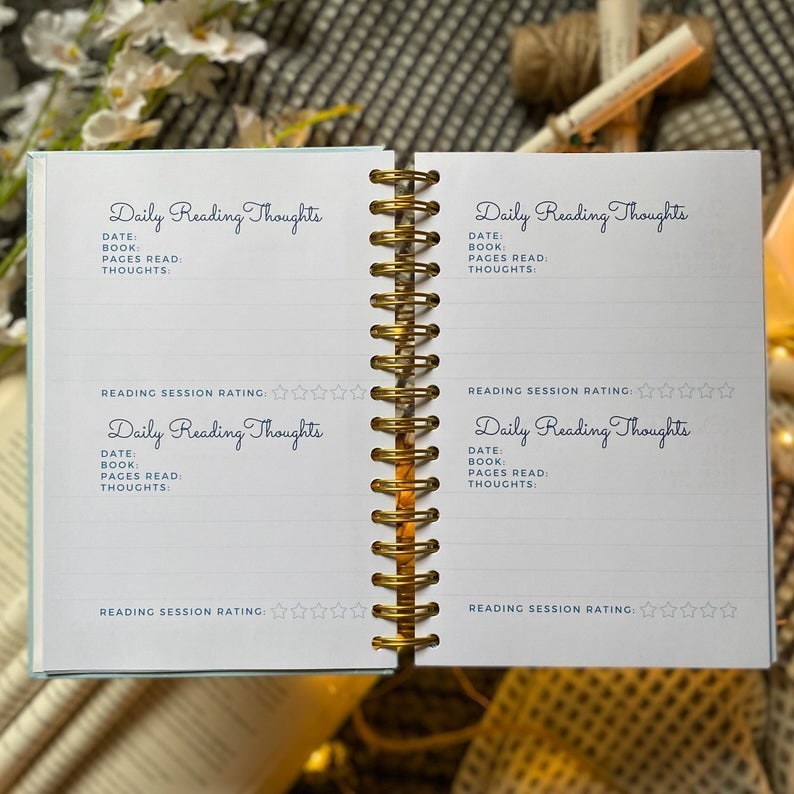 Daily Reading Thoughts
DATE:
BOOK:
PAGES READ:
THOUGHTS:
READING SESSION RATING:
Daily Reading Thoughts
DATE:
BOOK:
PAGES READ:
THOUGHTS:
READING SESSION RATING:
Daily Reading Thoughts
DATE:
BOOK:
PAGES READ:
THOUGHTS:
READING SESSION RATING:
Daily Reading Thoughts
DATE:
BOOK:
PAGES READ:
THOUGHTS:
READING SESSION RATING: